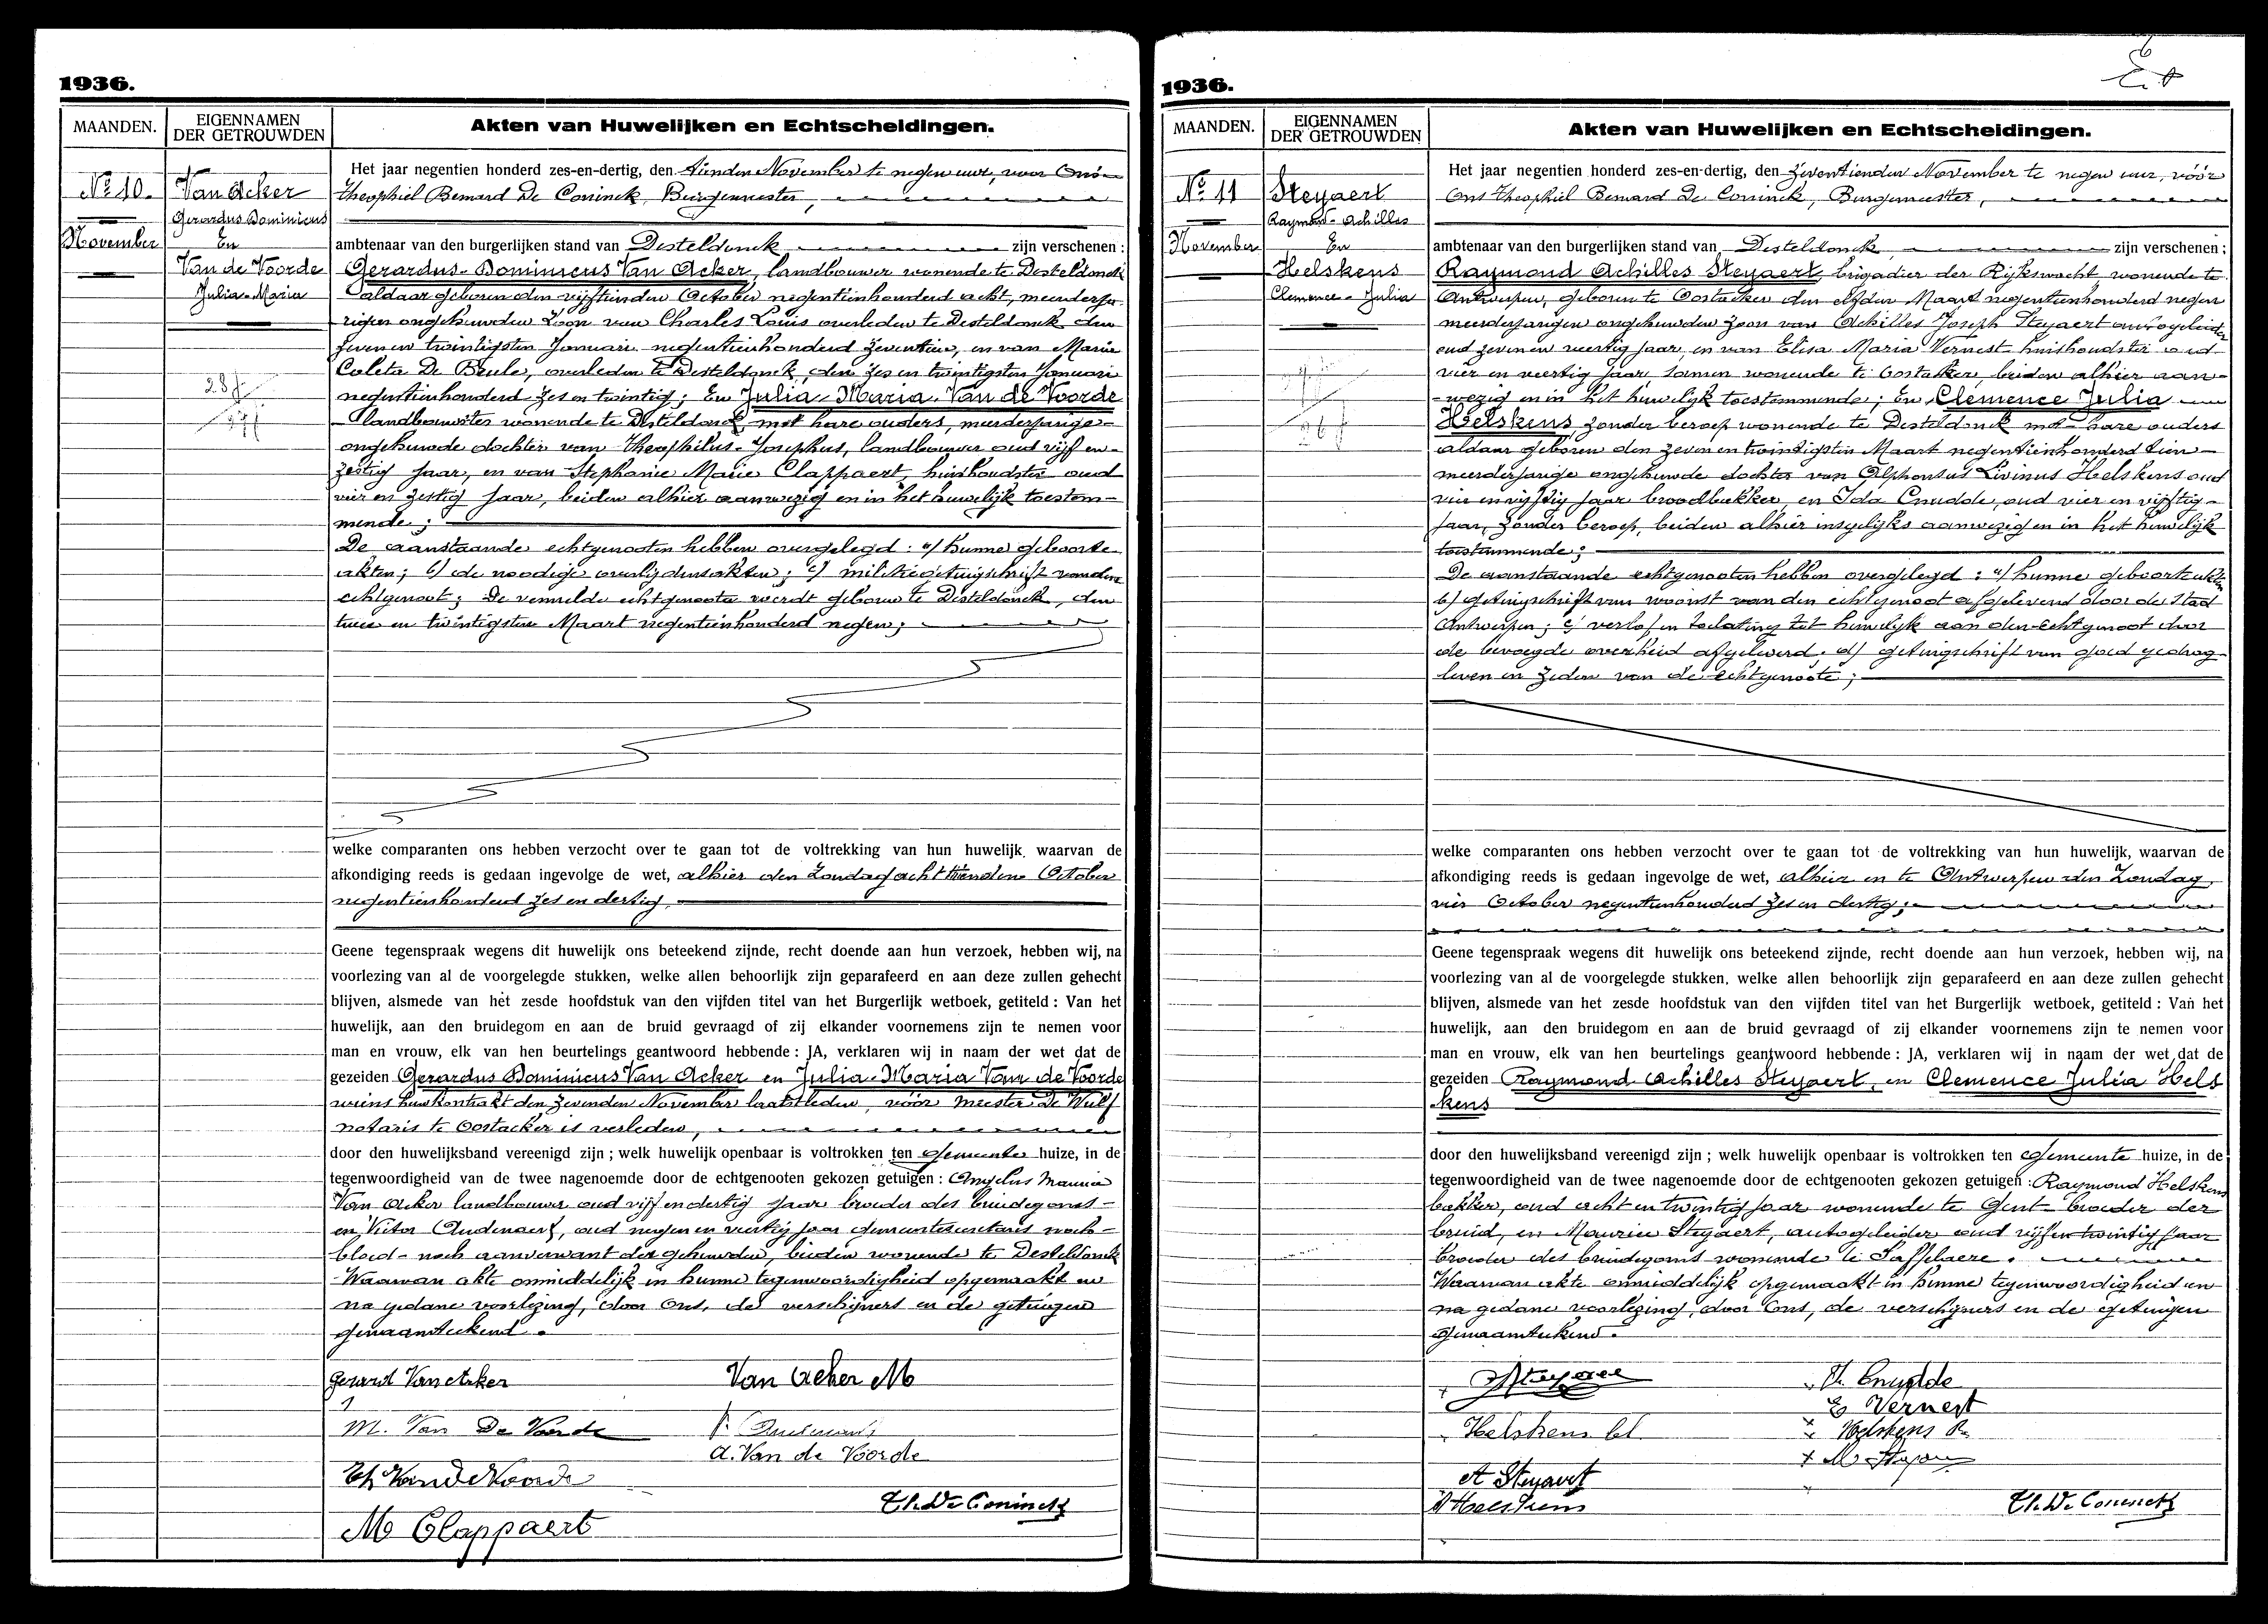 1936.
MAANDEN.
EIGENNAMEN
DER GETROUWDEN
Akten van Huwelijken en Echtscheidingen.
Nº 10.
November
Van Acker
Gerardus Dominicus
En
Van de Voorde
Julia-Maria
Het jaar negentien honderd zes-en-dertig, den tienden November te negen uur, voor Ons
Theophiel Bernard De Coninck, Burgemeester,
ambtenaar van den burgerlijken stand van Desteldonck zijn verschenen :
Gerardus-Dominicus Van Acker, landbouwer wonende te Desteldonck
aldaar geboren den vijftienden October negentienhonderd acht, meerderja-
rigen ongehuwden Zoon van Charles Louis overleden te Desteldonck den
zeven en twintigsten Januari negentienhonderd zeventien, en van Marie
Coleta De Beule, overleden te Desteldonck, den zes en twintigsten Januari
negentienhonderd zes en twintig; En Julia-Maria-Van de Voorde
landbouwster wonende te Desteldonck met hare ouders, meerderjarige
ongehuwde dochter van Theophilus-Josephus, landbouwer oud vijf en
zestig jaar, en van Stephanie Marie Clappaert, huishoudster oud
vier en zestig jaar, beiden alhier aanwezig en in het huwelijk toestem-
mende;
De aanstaande echtgenooten hebben overgelegd : a) hunne geboorte-
akten; b) de noodige overlijdensakten; c) militiegetuigschrift van den
echtgenoot; De vermelde echtgenoote werdt geboren te Desteldonck, den
twee en twintigsten Maart negentienhonderd negen;
welke comparanten ons hebben verzocht over te gaan tot de voltrekking van hun huwelijk, waarvan de
afkondiging reeds is gedaan ingevolge de wet, alhier den Zondag achttienden October
negentienhonderd zes en dertig,
Geene tegenspraak wegens dit huwelijk ons beteekend zijnde, recht doende aan hun verzoek, hebben wij, na
voorlezing van al de voorgelegde stukken, welke allen behoorlijk zijn geparafeerd en aan deze zullen gehecht
blijven, alsmede van het zesde hoofdstuk van den vijfden titel van het Burgerlijk wetboek, getiteld : Van het
huwelijk, aan den bruidegom en aan de bruid gevraagd of zij elkander voornemens zijn te nemen voor
man en vrouw, elk van hen beurtelings geantwoord hebbende : JA, verklaren wij in naam der wet dat de
gezeiden Gerardus Dominicus Van Acker en Julia-Maria Van de Voorde
wiens huwkontrakt den zevenden November laatstleden, vóór meester De Wulf
notaris te Oostacker is verleden,
door den huwelijksband vereenigd zijn ; welk huwelijk openbaar is voltrokken ten Gemeente huize, in de
tegenwoordigheid van de twee nagenoemde door de echtgenooten gekozen getuigen : Angelus Maurice
Van Acker landbouwer oud vijf en dertig jaar broeder des bruidegoms-
en Victor Audenaert, oud negen en veertig jaar gemeentesecretaris noch-
bloed- noch aanverwant der gehuwden, beiden wonende te Desteldonck
Waarvan akte onmiddelijk in hunne tegenwoordigheid opgemaakt en
na gedane voorlezing, door Ons, de verschijners en de getuigen
genaamteekend.
Gerard Van Acker
Van Acker M
M. Van De Voorde
A. Van de Voorde
Th Van de Voorde
Th. De Coninck
M Clappaert
1936.
MAANDEN.
EIGENNAMEN
DER GETROUWDEN
Akten van Huwelijken en Echtscheidingen.
Nº 11
November
Steyaert
Raymond-Achilles
En
Helskens
Clemence-Julia
Het jaar negentien honderd zes-en-dertig, den zeventienden November te negen uur, vóór
Ons Theophiel Bernard De Coninck, Burgemeester,
ambtenaar van den burgerlijken stand van Desteldonck, zijn verschenen :
Raymond Achilles Steyaert, brigadier der Rijkswacht wonende te
Antwerpen, geboren te Oostacker den elfden Maart negentienhonderd negen
meerderjarigen ongehuwden zoon van Achilles Joseph Steyaert autogeleider
oud zeven en veertig jaar, en van Elisa Maria Vernest huishoudster oud
vier en veertig jaar, samen wonende te Oostakker, beiden alhier aan-
wezig en in het huwelijk toestemmende; En Clemence Julia
Helskens, zonder beroep wonende te Desteldonck met hare ouders
aldaar geboren den zeven en twintigsten Maart negentienhonderd tien
meerderjarige ongehuwde dochter van Alphonsus Livinus Helskens oud
vier en vijftig jaar broodbakker, en Ida Cnudde, oud vier en vijftig
jaar, zonder beroep, beiden alhier insgelijks aanwezig en in het huwelijk
toestemmende;
De aanstaande echtgenooten hebben overgelegd : a) hunne geboorteakten
b) getuigschrift van woonst van den echtgenoot afgeleverd door de Stad
Antwerpen; c) verlof en toelating tot huwelijk aan den echtgenoot door
de bevoegde overheid afgeleverd. d) getuigschrift van goed gedrag
leven en zeden van de echtgenoote;
welke comparanten ons hebben verzocht over te gaan tot de voltrekking van hun huwelijk, waarvan de
afkondiging reeds is gedaan ingevolge de wet, alhier en te Antwerpen den Zondag
vier October negentienhonderd zes en dertig;
Geene tegenspraak wegens dit huwelijk ons beteekend zijnde, recht doende aan hun verzoek, hebben wij, na
voorlezing van al de voorgelegde stukken, welke allen behoorlijk zijn geparafeerd en aan deze zullen gehecht
blijven, alsmede van het zesde hoofdstuk van den vijfden titel van het Burgerlijk wetboek, getiteld : Van het
huwelijk, aan den bruidegom en aan de bruid gevraagd of zij elkander voornemens zijn te nemen voor
man en vrouw, elk van hen beurtelings geantwoord hebbende : JA, verklaren wij in naam der wet dat de
gezeiden Raymond Achilles Steyaert, en Clemence Julia Hels
kens
door den huwelijksband vereenigd zijn ; welk huwelijk openbaar is voltrokken ten Gemeente huize, in de
tegenwoordigheid van de twee nagenoemde door de echtgenooten gekozen getuigen : Raymond Helskens
bakker, oud acht en twintig jaar wonende te Gent broeder der
bruid, en Maurice Steyaert, autogeleider oud vijf en twintig jaar
broeder des bruidegoms wonende te Saffelaere.
Waarvan akte onmiddelijk opgemaakt in hunne tegenwoordigheid en
na gedane voorlezing, door Ons, de verschijners en de getuigen
genaamteekend.
Steyaert
Cnudde
E Vernest
Helskens Cl.
Helskens R
M Steyaert
A Steyaert
A Helskens
Th. De Coninck